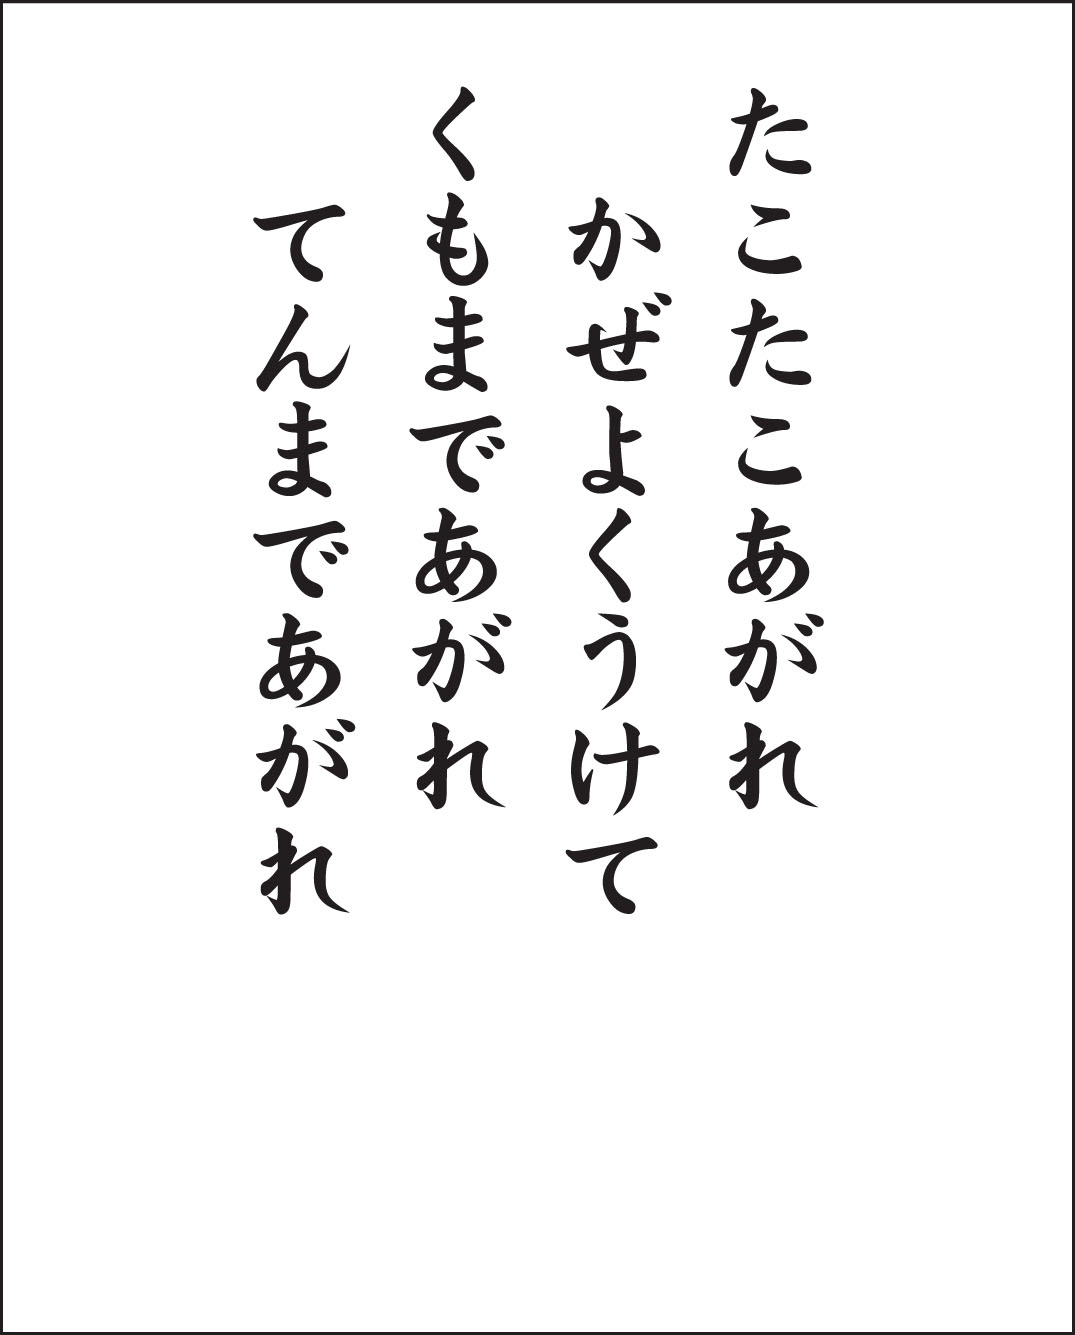 たこたこあがれ
かぜよくうけて
くもまであがれ
てんまであがれ